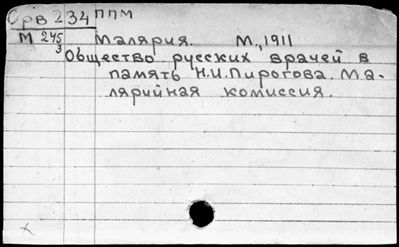 Орв 234 ППМ
М 245 Малярия. М., 1911
3 Общество русских врачей в
память Н.И.Пирогова. Ма-
лярийная комиссия.
х